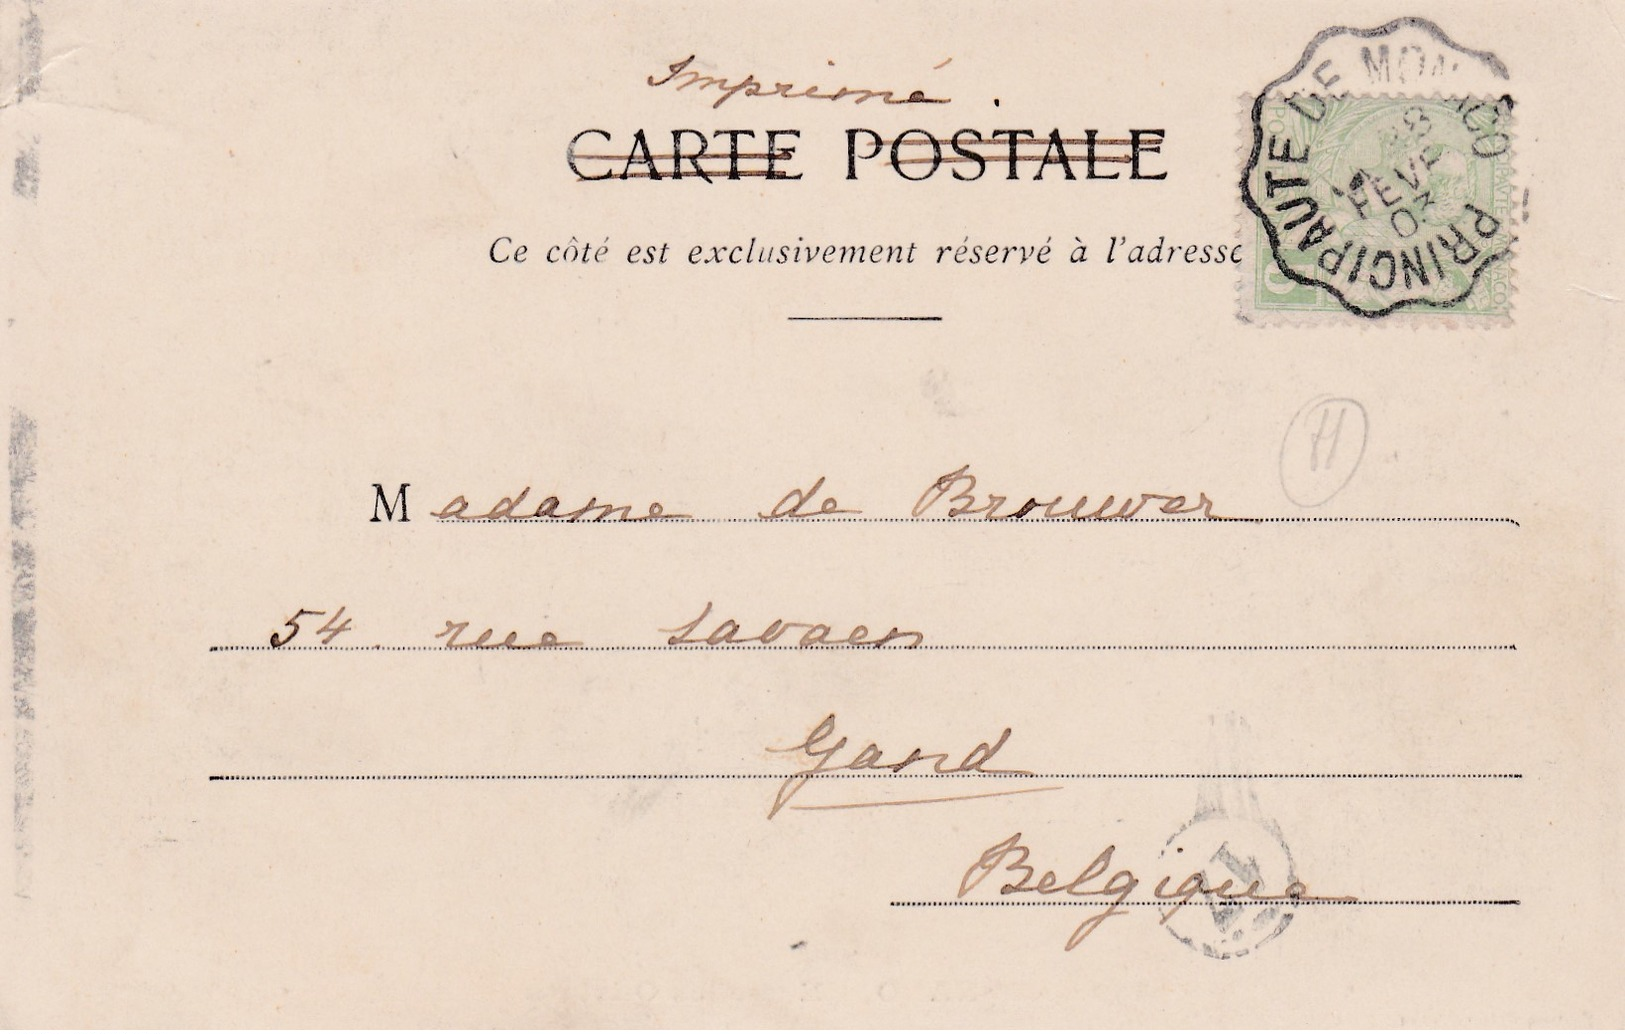 Imprimé.
CARTE POSTALE
Ce côté est exclusivement réservé à l'adresse
PRINCIPAUTE DE MONACO
FEVR
03
Madame de Brouwer
54. rue Savaen
Gand
Belgique